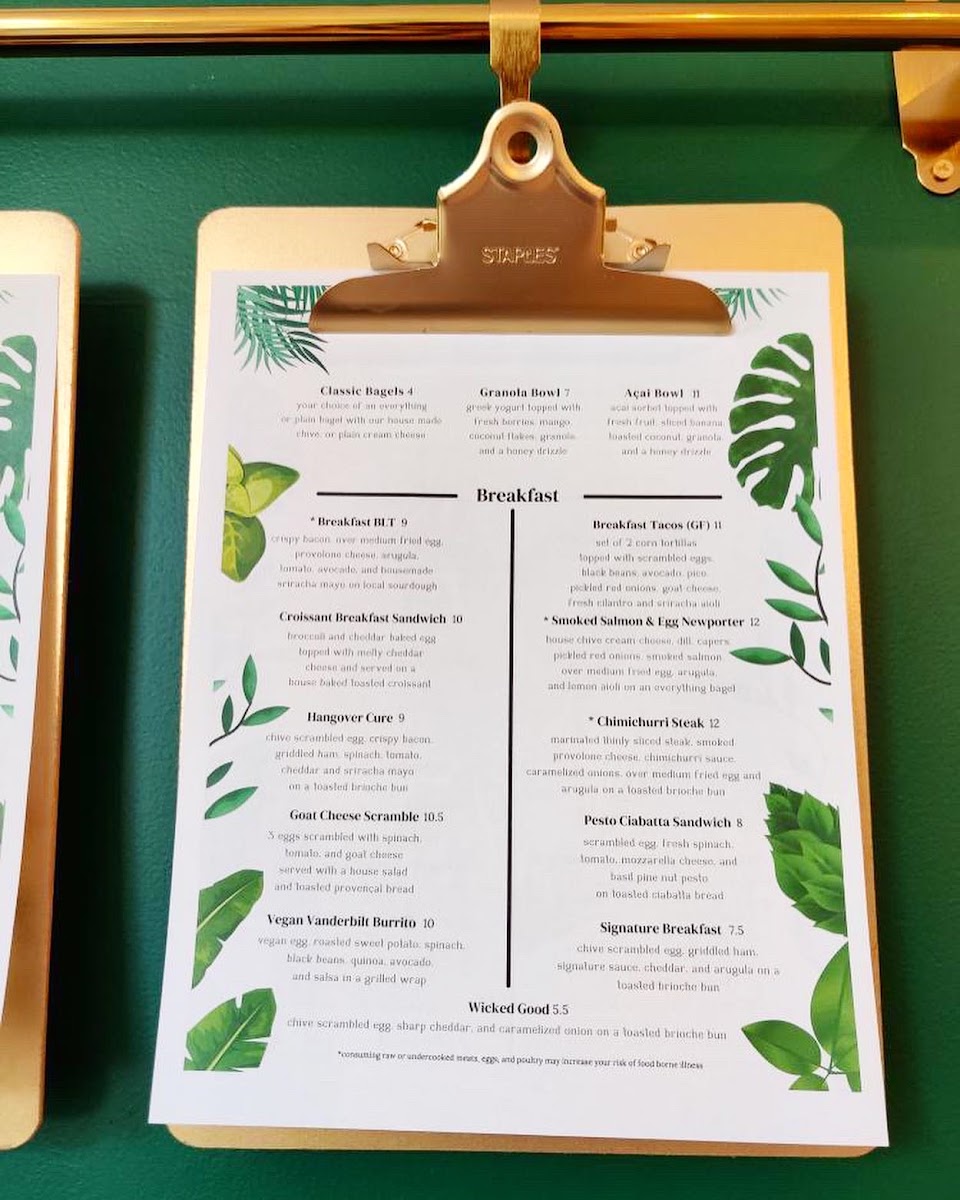 STAPLES
Classic Bagels 4
your choice of an everything
or plain bagel with our house made
chive, or plain cream cheese
Granola Bowl 7
greek yogurt topped with
fresh berries, mango,
coconut flakes, granola,
and a honey drizzle
Açai Bowl 11
acai sorbet topped with
fresh fruit, sliced banana,
toasted coconut, granola,
and a honey drizzle
Breakfast
* Breakfast BLT 9
crispy bacon, over medium fried egg,
provolone cheese, arugula,
tomato, avocado, and housemade
sriracha mayo on local sourdough
Croissant Breakfast Sandwich 10
broccoli and cheddar baked egg
topped with melty cheddar
cheese and served on a
house baked toasted croissant
Hangover Cure 9
chive scrambled egg, crispy bacon,
griddled ham, spinach, tomato,
cheddar and sriracha mayo
on a toasted brioche bun
Goat Cheese Scramble 10.5
3 eggs scrambled with spinach,
tomato, and goat cheese
served with a house salad
and toasted provençal bread
Vegan Vanderbilt Burrito 10
vegan egg, roasted sweet potato, spinach,
black beans, quinoa, avocado,
and salsa in a grilled wrap
Breakfast Tacos (GF) 11
set of 2 corn tortillas
topped with scrambled eggs,
black beans, avocado, pico,
pickled red onions, goat cheese,
fresh cilantro and sriracha aioli
* Smoked Salmon & Egg Newporter 12
house chive cream cheese, dill, capers,
pickled red onions, smoked salmon,
over medium fried egg, arugula,
and lemon aioli on an everything bagel
* Chimichurri Steak 12
marinated thinly sliced steak, smoked
provolone cheese, chimichurri sauce,
caramelized onions, over medium fried egg and
arugula on a toasted brioche bun
Pesto Ciabatta Sandwich 8
scrambled egg, fresh spinach,
tomato, mozzarella cheese, and
basil pine nut pesto
on toasted ciabatta bread
Signature Breakfast 7.5
chive scrambled egg, griddled ham,
signature sauce, cheddar, and arugula on a
toasted brioche bun
Wicked Good 5.5
chive scrambled egg, sharp cheddar, and caramelized onion on a toasted brioche bun
*consuming raw or undercooked meats, eggs, and poultry may increase your risk of food borne illness